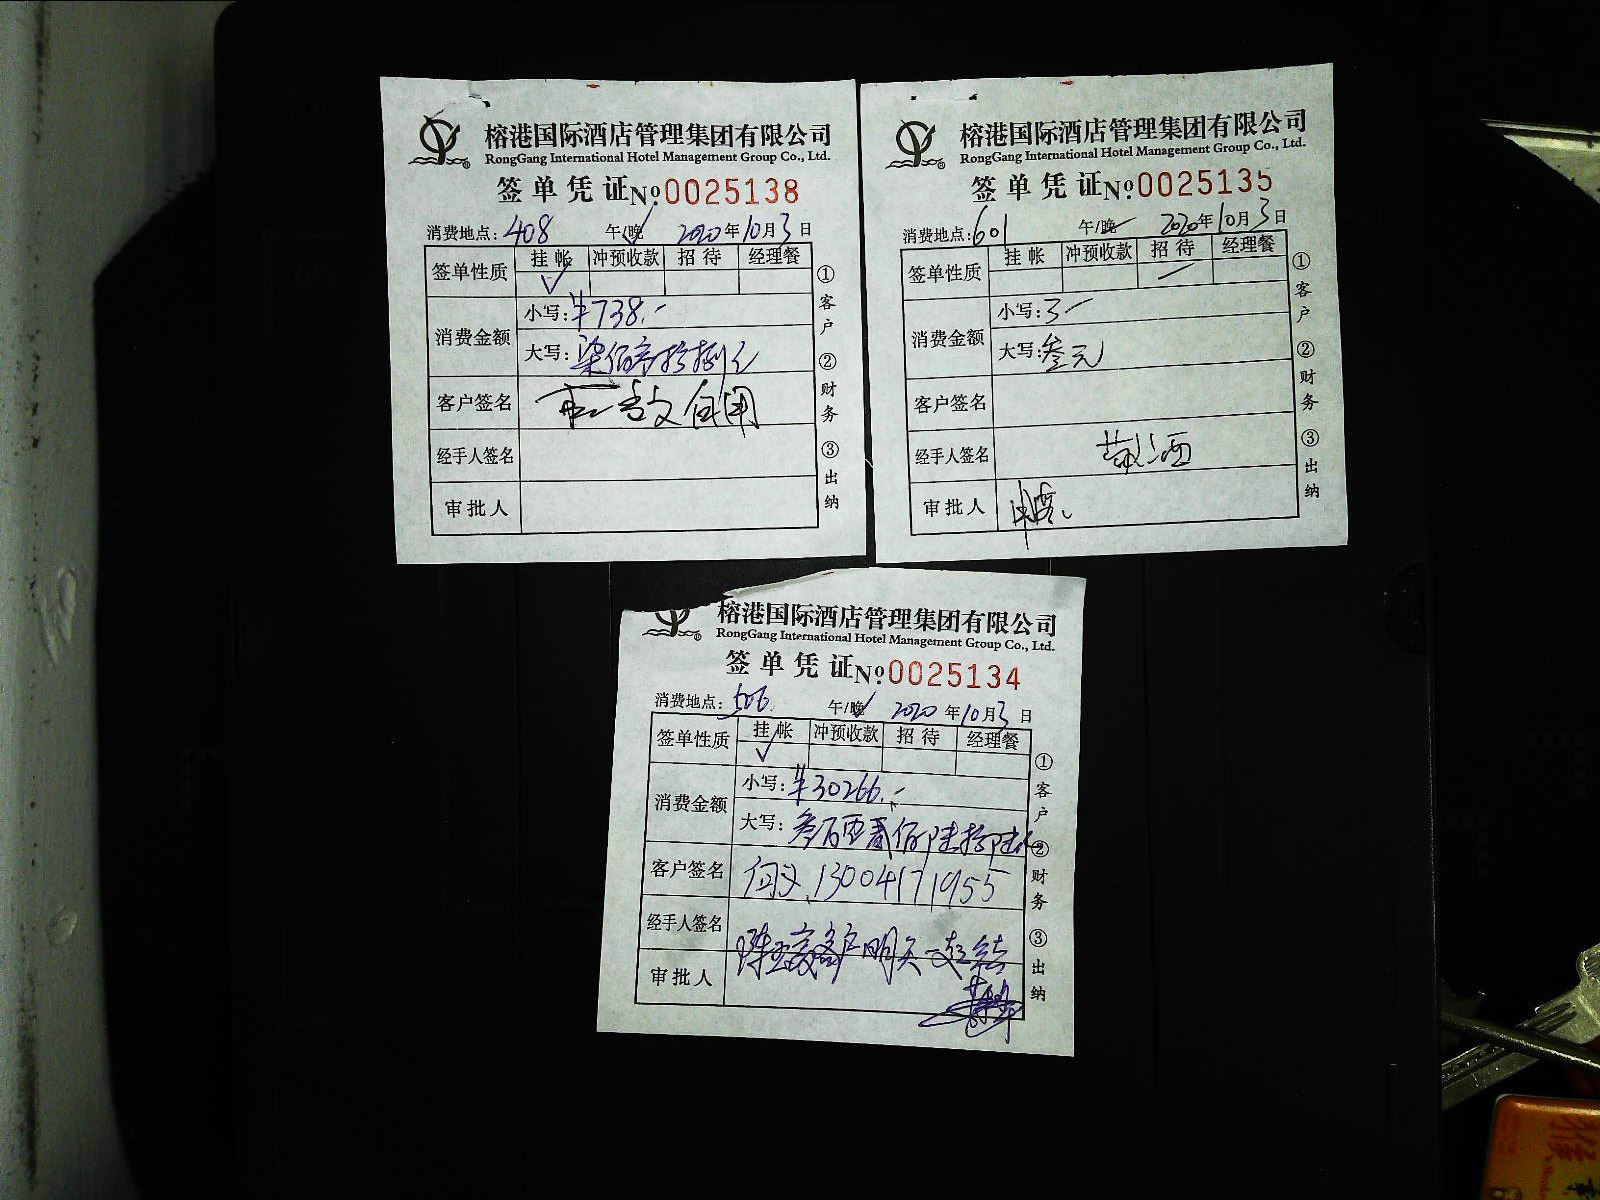 榕港国际酒店管理集团有限公司
RongGang International Hotel Management Group Co., Ltd.
签单凭证 No.0025138
消费地点: 408 午/晚 2020年10月3日
签单性质 挂帐 冲预收款 招待 经理餐
消费金额 小写: ¥738.-
大写: 柒佰叁拾捌元
客户签名
经手人签名
审批人
①客户 ②财务 ③出纳
榕港国际酒店管理集团有限公司
RongGang International Hotel Management Group Co., Ltd.
签单凭证 No.0025135
消费地点: 601 午/晚 2020年10月3日
签单性质 挂帐 冲预收款 招待 经理餐
消费金额 小写: 3-
大写: 叁元
客户签名
经手人签名
审批人
①客户 ②财务 ③出纳
榕港国际酒店管理集团有限公司
RongGang International Hotel Management Group Co., Ltd.
签单凭证 No.0025134
消费地点: 506 午/晚 2020年10月3日
签单性质 挂帐 冲预收款 招待 经理餐
消费金额 小写: ¥30266.-
大写: 叁万零贰佰陆拾陆元
客户签名 13004171955
经手人签名 客户明天一起结
审批人
①客户 ②财务 ③出纳